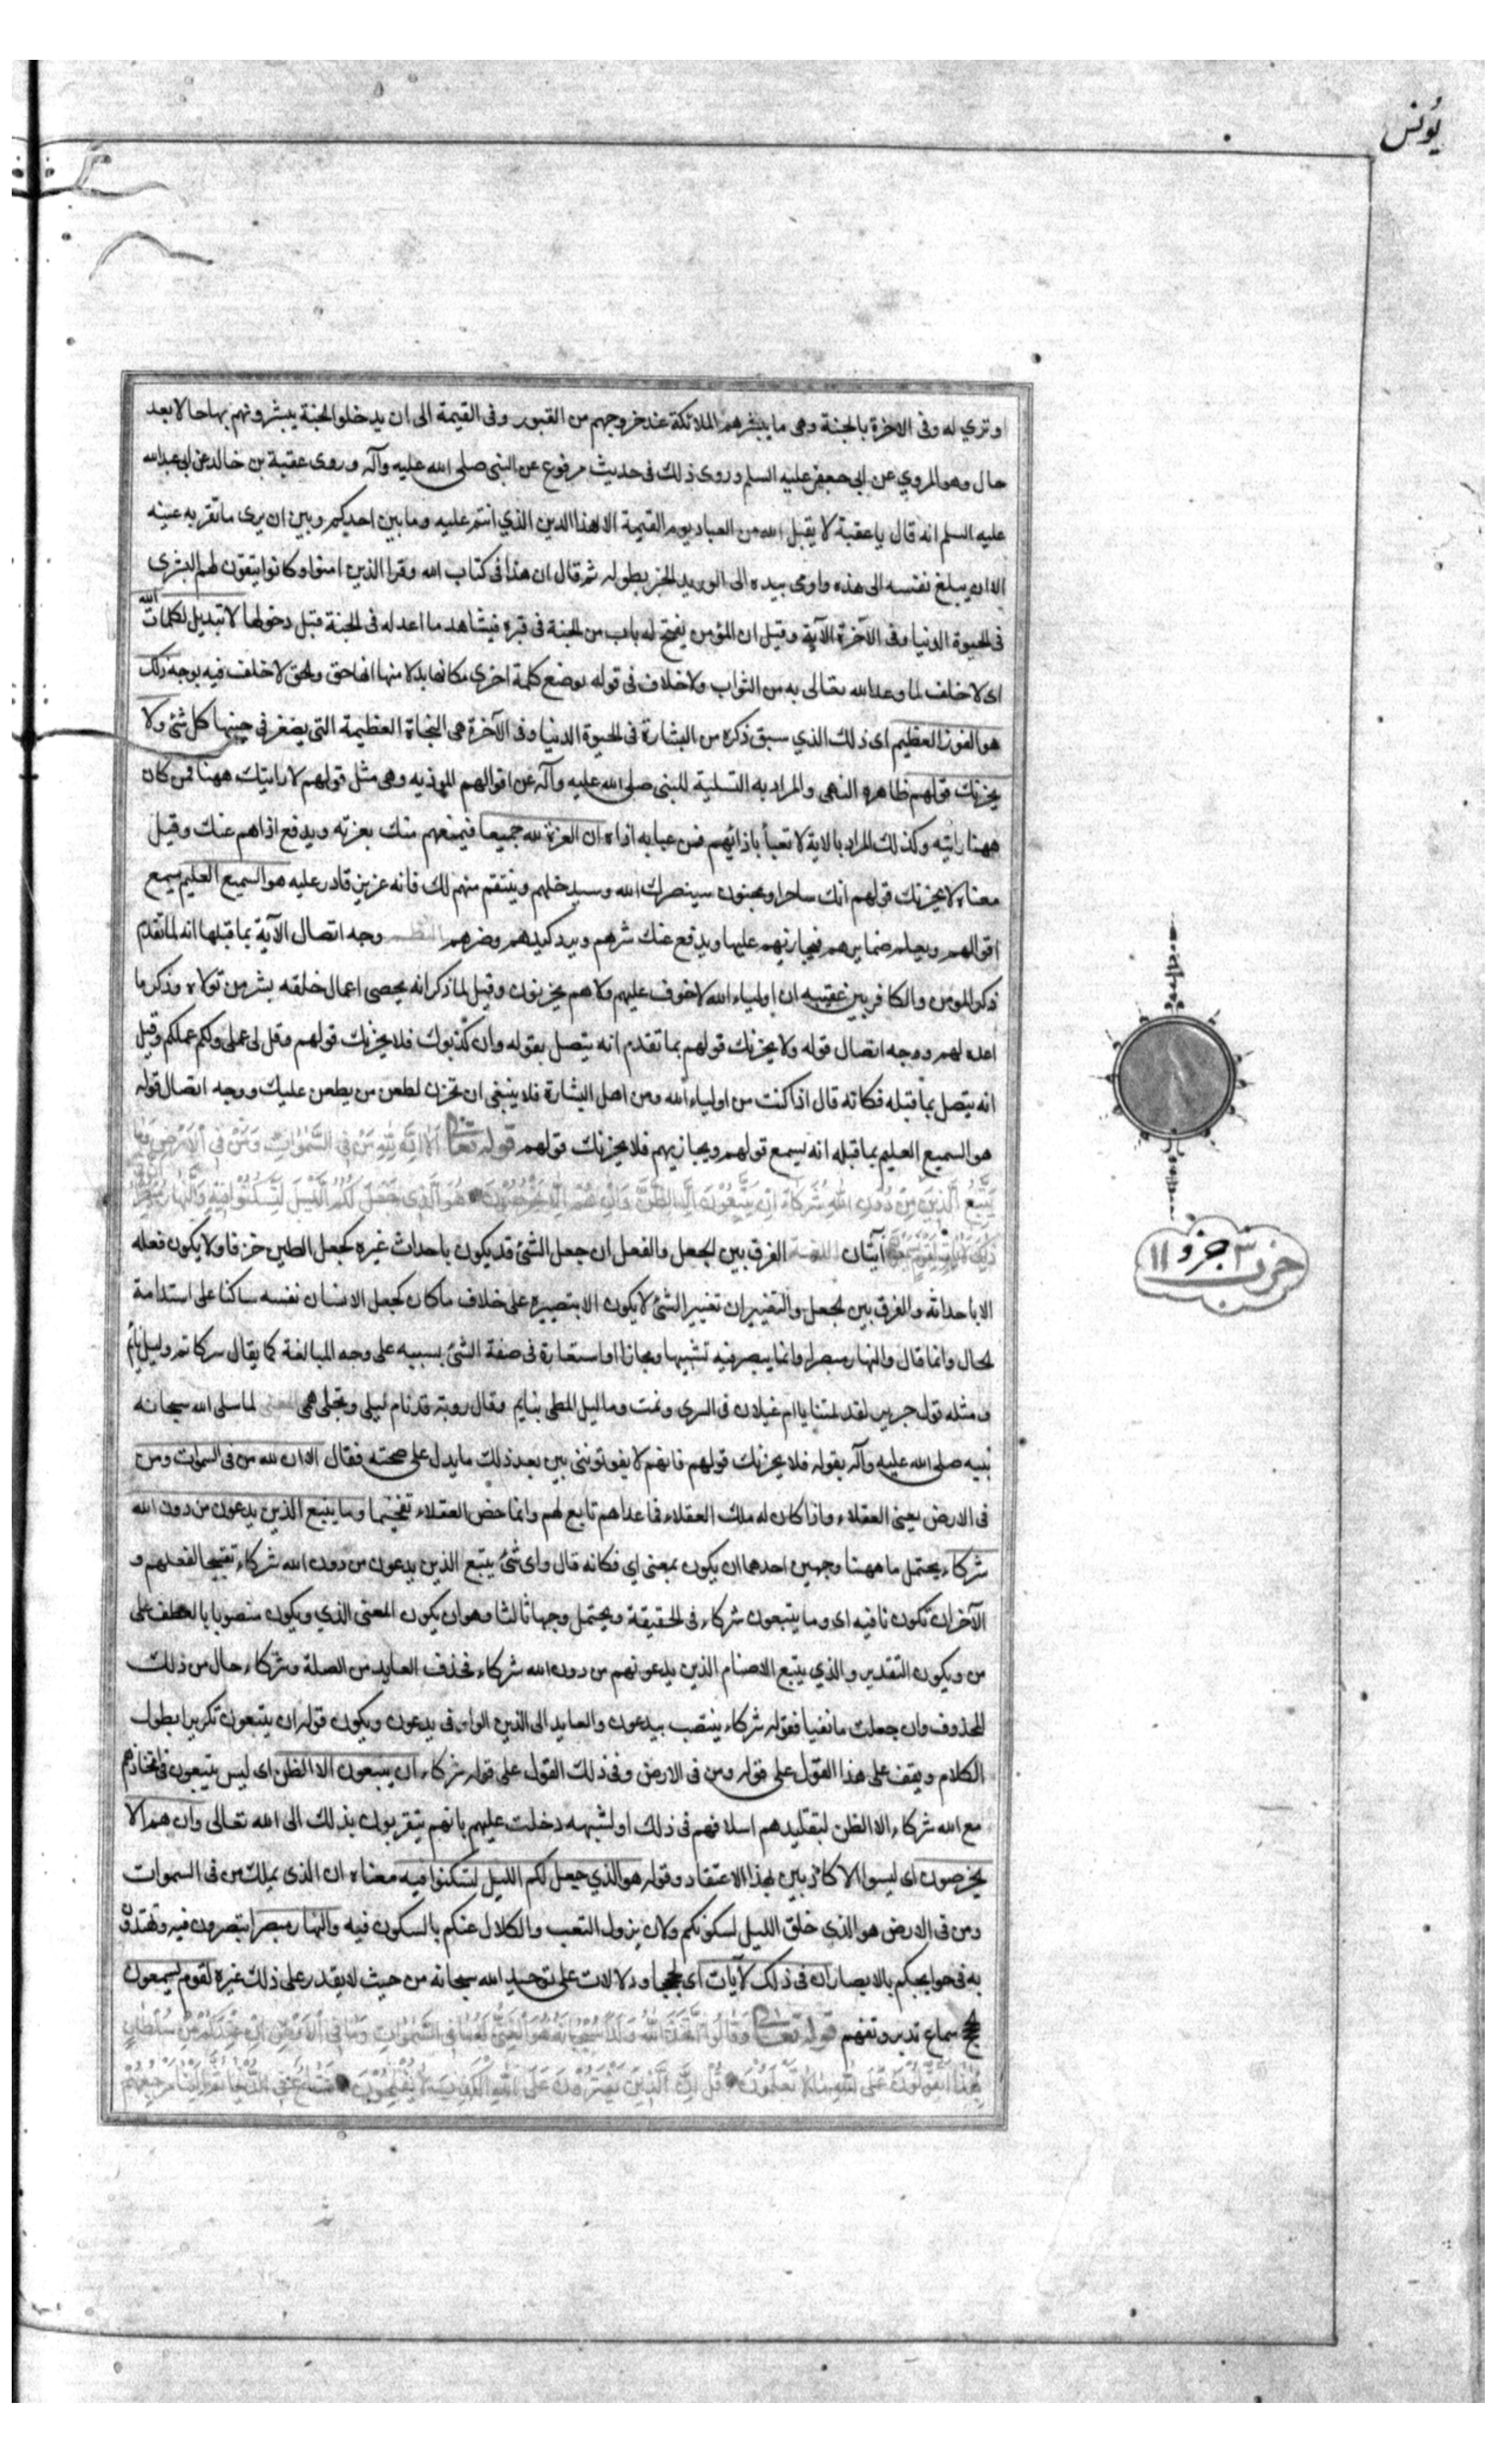 يونس
او ترى له وفى الاخرة بالجنة وهى ما يبشرهم الملائكة عند خروجهم من القبور وفى القيمة الى ان يدخلوا الجنة يبشرونهم بها حالا بعد
حال وهو المروي عن ابى جعفر عليه السلم وروى ذلك فى حديث مرفوع عن النبى صلى الله عليه وآله وروى عقبة بن خالد عن ابى عبدالله
عليه السلم انه قال يا عقبة لا يقبل الله من العباد يوم القيمة الا هذا الدين الذي انتم عليه وما بين احدكم وبين ان يرى ما تقر به عينه
الا ان يبلغ نفسه الى هذه واومى بيده الى الوريد الخبر بطوله ثم قال ان هذا فى كتاب الله وقرا الذين امنوا وكانوا يتقون لهم البشرى
فى الحيوة الدنيا وفى الآخرة الآية وقيل ان المؤمن يفتح له باب من الجنة فى قبره فيشاهد ما اعد له فى الجنة قبل دخولها لا تبديل لكلمات الله
اى لا خلف لما وعد الله تعالى به من الثواب ولا خلاف فى قوله بوضع كلمة اخرى مكانها بدلا منها لانها حق والحق لا خلف فيه بوجه ذلك
هو الفوز العظيم اى ذلك الذي سبق ذكره من البشارة فى الحيوة الدنيا وفى الآخرة هى النجاة العظيمة التى يصغر فى جنبها كل شئ ولا
يحزنك قولهم ظاهره النهى والمراد به التسلية للنبى صلى الله عليه وآله عن اقوالهم الموذية وهى مثل قولهم لا رايتك ههنا فمن كان
ههنا رايته وكذلك المراد بالاية لا تعبأ باذائهم فمن عبا به اذاه ان العزة لله جميعا فيمنعهم منك بعزته ويدفع اذاهم عنك وقيل
معناه لا يحزنك قولهم انك ساحر او مجنون سينصرك الله وسيدخلهم وينتقم منهم لك فانه عزيز قادر عليه هو السميع العليم يسمع
اقوالهم ويعلم ضمايرهم فيجازيهم عليها ويدفع عنك شرهم ويرد كيدهم وضرهم النظم وجه اتصال الآية بما قبلها انه لما تقدم
ذكر المؤمن والكافر بين عقيبه ان اولياء الله لا خوف عليهم ولا هم يحزنون وقيل لما ذكر انه يحصى اعمال خلقه بشر من تولاه وذكر ما
اعده لهم ووجه اتصال قوله ولا يحزنك قولهم بما تقدم انه يتصل بقوله وان كذبوك فلا يحزنك قولهم وقل لى عملى ولكم عملكم وقيل
انه يتصل بما قبله فكانه قال اذا كنت من اولياء الله ومن اهل البشارة فلا ينبغى ان تحزن لطعن من يطعن عليك ووجه اتصال قوله
هو السميع العليم بما قبله انه يسمع قولهم ويجازيهم فلا يحزنك قولهم قوله تعالى أَلَا إِنَّ لِلَّهِ مَنْ فِي السَّمٰوَاتِ وَمَنْ فِي الْأَرْضِ وَمَا
يَتَّبِعُ الَّذِينَ يَدْعُونَ مِنْ دُونِ اللهِ شُرَكَاءَ إِنْ يَتَّبِعُونَ إِلَّا الظَّنَّ وَإِنْ هُمْ إِلَّا يَخْرُصُونَ هُوَ الَّذِي جَعَلَ لَكُمُ اللَّيْلَ لِتَسْكُنُوا فِيهِ وَالنَّهَارَ مُبْصِرًا إِنَّ فِي
ذَلِكَ لَآيَاتٍ لِقَوْمٍ يَسْمَعُونَ آيتان اللغة الفرق بين الجعل والفعل ان جعل الشئ قد يكون باحداث غيره كجعل الطين خزفا ولا يكون فعله
الا باحداثه والفرق بين الجعل والتغيير ان تغيير الشئ لا يكون الا بتصييره على خلاف ما كان كجعل الانسان نفسه ساكنا على استدامة
الحال وانما قال والنهار مبصرا وانما يبصر فيه تشبيها ومجازا او استعارة فى صفة الشئ بسببه على وجه المبالغة كما يقال سر كاتم وليل نائم
ومثله قول جرير لقد لمتنا يا ام غيلان فى السرى ونمت وما ليل المطى بنايم وقال روبة قد نام ليلى وتجلى همى المعنى لما سلى الله سبحانه
نبيه صلى الله عليه وآله بقوله فلا يحزنك قولهم فانهم لا يفوتوننى بين بعد ذلك ما يدل على صحته فقال الا ان لله من فى السموات ومن
فى الارض يعنى العقلاء واذا كان له ملك العقلاء فما عداهم تابع لهم وانما خص العقلاء تفخيما وما يتبع الذين يدعون من دون الله
شركاء يحتمل ما ههنا وجهين احدهما ان يكون بمعنى اي فكانه قال واى شئ يتبع الذين يدعون من دون الله شركاء تقبيحا لفعلهم و
الآخر ان تكون نافيه اى وما يتبعون شركاء فى الحقيقة ويحتمل وجها ثالثا وهو ان يكون المعنى الذي ويكون منصوبا بالعطف على
من ويكون التقدير والذي يتبع الاصنام الذين يدعونهم من دون الله شركاء فحذف العايد من الصلة وشركاء حال من ذلك
المحذوف وان جعلت ما نفيا فقوله شركاء ينتصب بيدعون والعايد الى الذين الواو فى يدعون ويكون قوله ان يتبعون تكريرا بطول
الكلام ويقف على هذا القول على قوله ومن فى الارض وفى ذلك القول على قوله شركاء ان يتبعون الا الظن اى ليس يتبعون فى اتخاذهم
مع الله شركاء الا الظن لتقليدهم اسلافهم فى ذلك او لشبهه دخلت عليهم بانهم يتقربون بذلك الى الله تعالى وان هم الا
يخرصون اى ليسوا الا كاذبين بهذا الاعتقاد وقوله هو الذي جعل لكم الليل لتسكنوا فيه معناه ان الذى يملك من فى السموات
ومن فى الارض هو الذي خلق الليل لسكونكم ولان يزول التعب والكلال عنكم بالسكون فيه والنهار مبصرا تبصرون فيه وتهتدون
به فى حوايجكم بالابصار ان فى ذلك لآيات اى لحججا ودلالات على توحيد الله سبحانه من حيث لا يقدر على ذلك غيره لقوم يسمعون
سماع تدبر وتفهم قوله تعالى وَقَالُوا اتَّخَذَ اللهُ وَلَدًا سُبْحَانَهُ هُوَ الْغَنِيُّ لَهُ مَا فِي السَّمٰوَاتِ وَمَا فِي الْأَرْضِ إِنْ عِنْدَكُمْ مِنْ سُلْطَانٍ
بِهٰذَا أَتَقُولُونَ عَلَى اللهِ مَا لَا تَعْلَمُونَ قُلْ إِنَّ الَّذِينَ يَفْتَرُونَ عَلَى اللهِ الْكَذِبَ لَا يُفْلِحُونَ مَتَاعٌ فِي الدُّنْيَا ثُمَّ إِلَيْنَا مَرْجِعُهُمْ
حزب ٣ جزو ١١